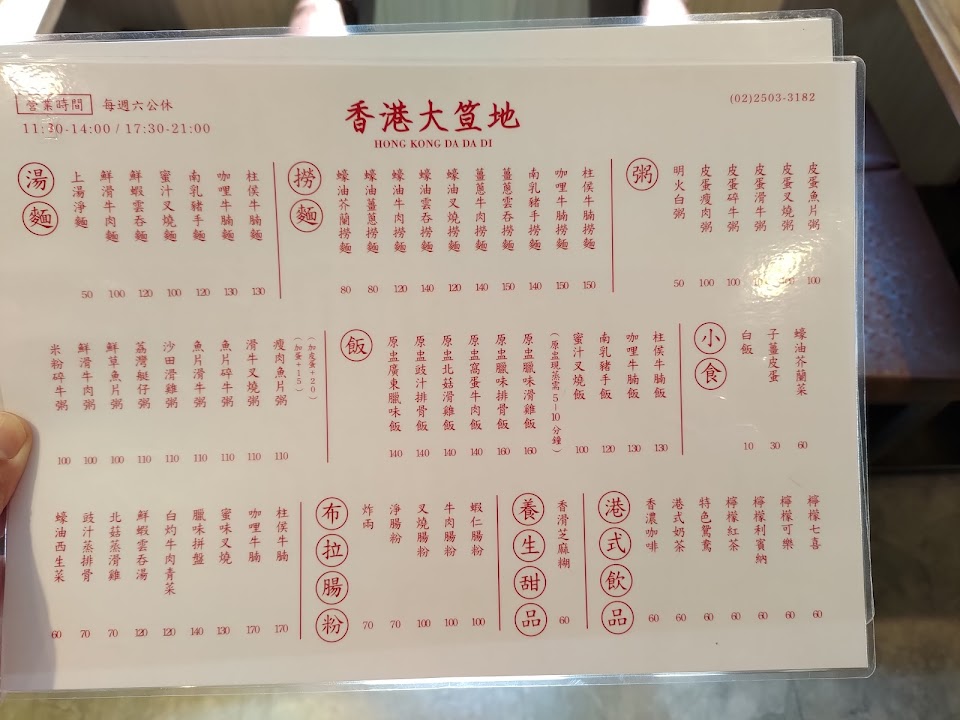 營業時間 每週六公休
11:30-14:00 / 17:30-21:00
香港大笪地
HONG KONG DA DA DI
(02)2503-3182
湯麵
上湯淨麵 50
鮮滑牛肉麵 100
鮮蝦雲吞麵 120
蜜汁叉燒麵 100
南乳豬手麵 120
咖哩牛腩麵 130
柱侯牛腩麵 130
撈麵
蠔油芥蘭撈麵 80
蠔油薑蔥撈麵 80
蠔油牛肉撈麵 120
蠔油雲吞撈麵 140
蠔油叉燒撈麵 120
薑蔥牛肉撈麵 140
薑蔥雲吞撈麵 150
南乳豬手撈麵 140
咖哩牛腩撈麵 150
柱侯牛腩撈麵 150
粥
明火白粥 50
皮蛋瘦肉粥 100
皮蛋碎牛粥 100
皮蛋滑牛粥
皮蛋叉燒粥
皮蛋魚片粥 100
米粉碎牛粥 100
鮮滑牛肉粥 100
鮮草魚片粥 100
荔灣艇仔粥 110
沙田滑雞粥 110
魚片滑牛粥 110
魚片碎牛粥 110
滑牛叉燒粥 110
瘦肉魚片粥 110
(加蛋+15)
(加皮蛋+20)
飯
原盅廣東臘味飯 140
原盅豉汁排骨飯 140
原盅北菇滑雞飯 140
原盅窩蛋牛肉飯 140
原盅臘味排骨飯 160
原盅臘味滑雞飯 160
(原盅現蒸需5~10分鐘)
蜜汁叉燒飯 100
南乳豬手飯 120
咖哩牛腩飯 130
柱侯牛腩飯 130
小食
白飯 10
子薑皮蛋 30
蠔油芥蘭菜 60
蠔油西生菜 60
豉汁蒸排骨 70
北菇蒸滑雞 70
鮮蝦雲吞湯 120
白灼牛肉青菜 120
臘味拼盤 140
蜜味叉燒 130
咖哩牛腩 170
柱侯牛腩 170
布拉腸粉
炸兩 70
淨腸粉 70
叉燒腸粉 100
牛肉腸粉 100
蝦仁腸粉 100
養生甜品
香滑芝麻糊 60
港式飲品
香濃咖啡 60
港式奶茶 60
特色鴛鴦 60
檸檬紅茶 60
檸檬利賓納 60
檸檬可樂 60
檸檬七喜 60